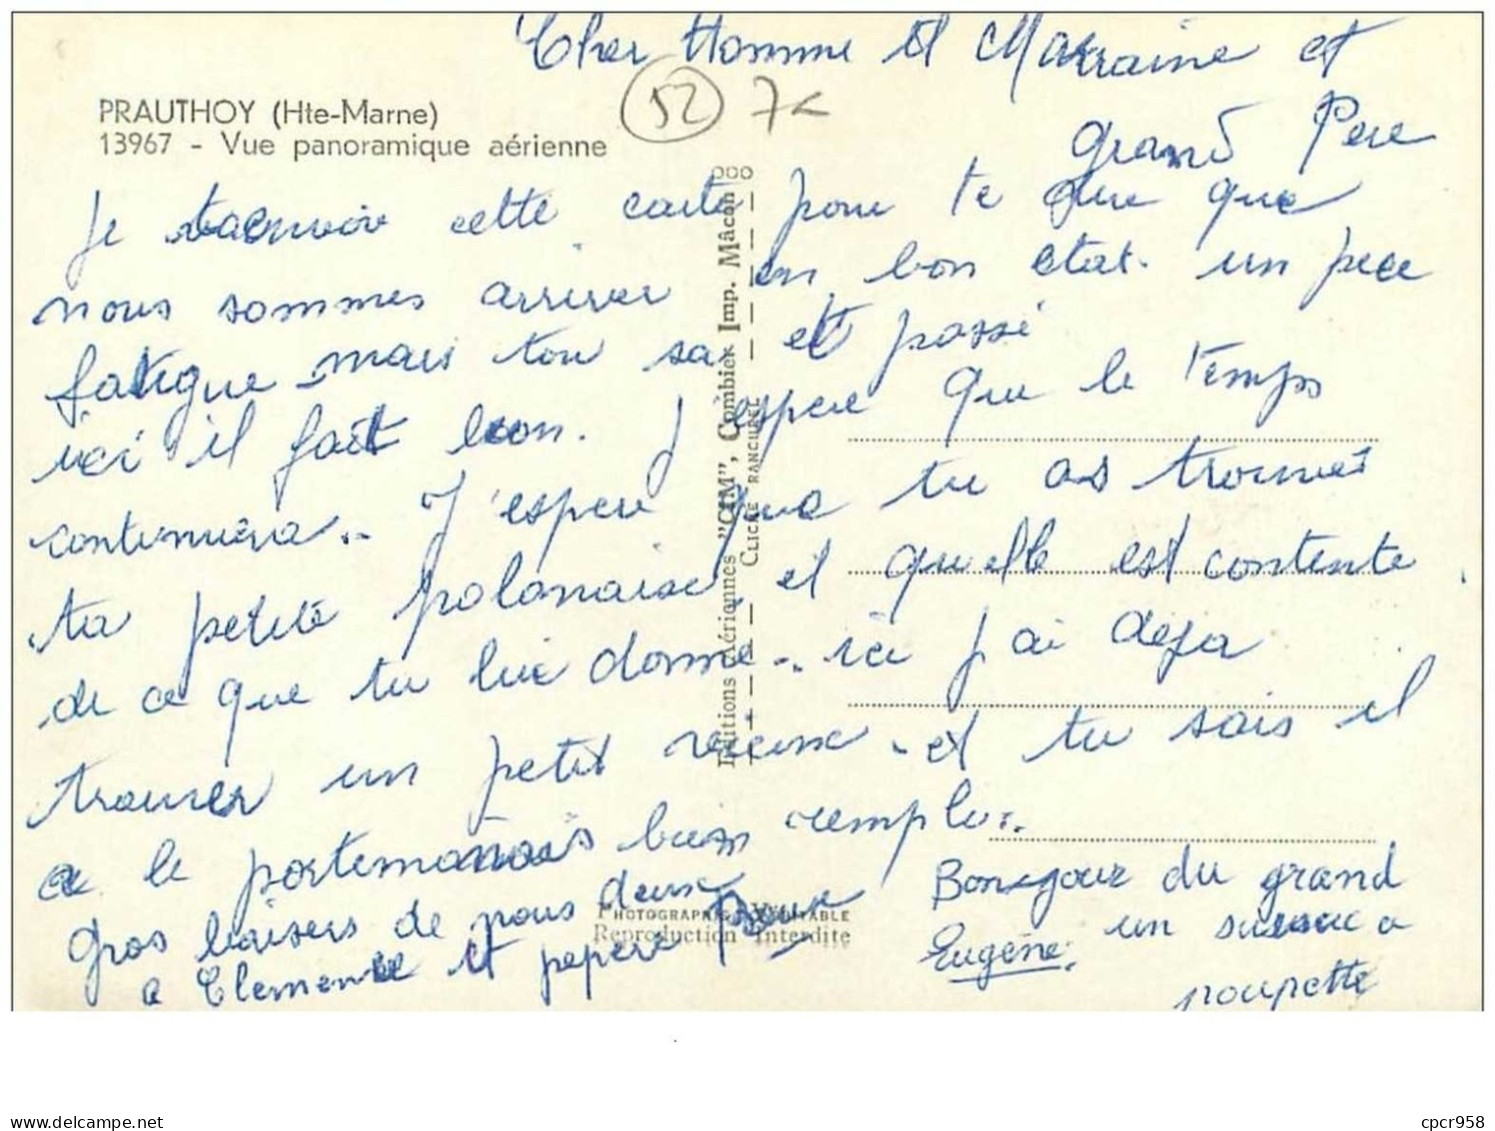 Cher Homme et Marraine et
grand Pere
PRAUTHOY (Hte-Marne)
13967 - Vue panoramique aérienne
52 7<
Je cette carte pour te que
nous sommes arriver en bon etat. un peee
fatigue mais tou sa et passé
ici il fait bon. J espere que le temps
continuera.. J'espere que tu as trouver
ta petite polonaise. et qu'elle est contente
de ce que tu lui donne.. ici j ai deja
trouver un petit - et tu sais il
a le portemonais bien rempli..
Gros baisers de nous deux
a Clemence et pepere
Bonjour du grand
Eugène. un a
poupette
Editions Aériennes "CIM", Combier Imp. Mâcon
CLICHÉ RANCUREL
PHOTOGRAPHIE VÉRITABLE
Reproduction Interdite
delcampe.net
cpcr958